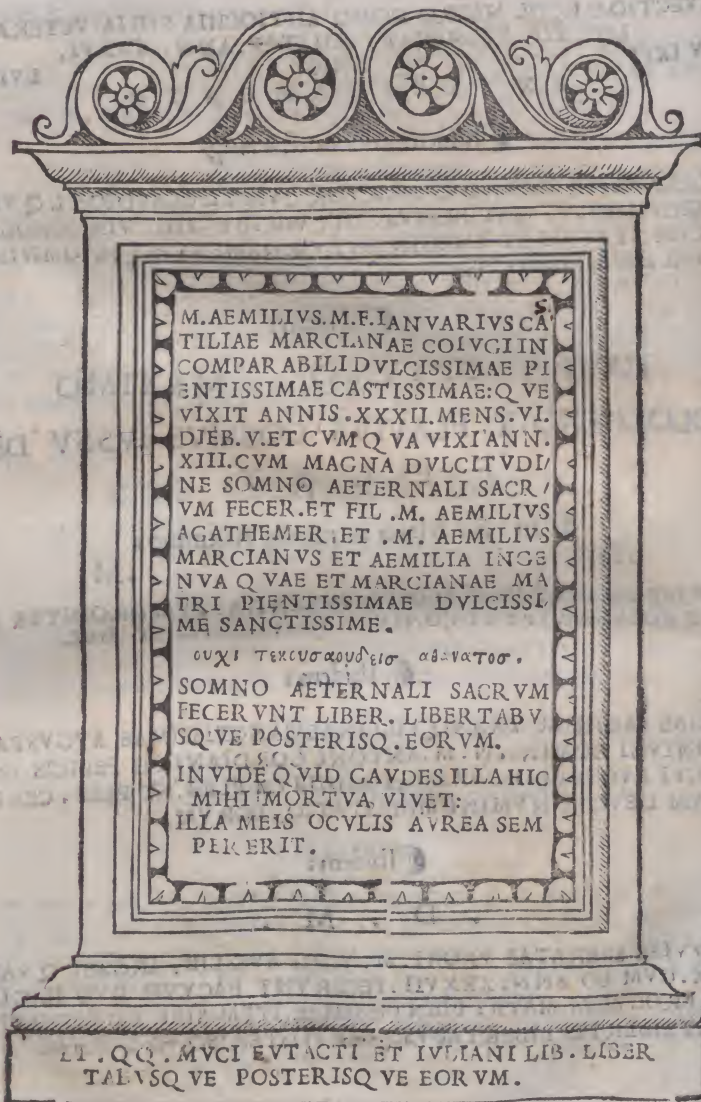 M. AEMILIVS. M. F. IANVARIVS CA
TILIAE MARCIANAE COIVGI IN
COMPARABILI DVLCISSIMAE PI
ENTISSIMAE CASTISSIMAE: QVE
VIXIT ANNIS .XXXII. MENS. VI.
DIEB. V. ET CVM QVA VIXI ANN.
XIII. CVM MAGNA DVLCITVDI/
NE SOMNO AETERNALI SACR/
VM FECER. ET FIL .M. AEMILIVS
AGATHEMER. ET .M. AEMILIVS
MARCIANVS ET AEMILIA INGE
NVA QVAE ET MARCIANAE MA
TRI PIENTISSIMAE DVLCISSI
ME SANCTISSIME.
ουχι αθανατοσ.
SOMNO AETERNALI SACRVM
FECERVNT LIBER. LIBERTABV
SQVE POSTERISQ. EORVM.
INVIDE QVID GAVDES ILLA HIC
MIHI MORTVA VIVET:
ILLA MEIS OCVLIS AVREA SEM
PER ERIT.
ET . QQ . MVCI EVTACTI ET IVLIANI LIB . LIBER
TABVSQVE POSTERISQVE EORVM.